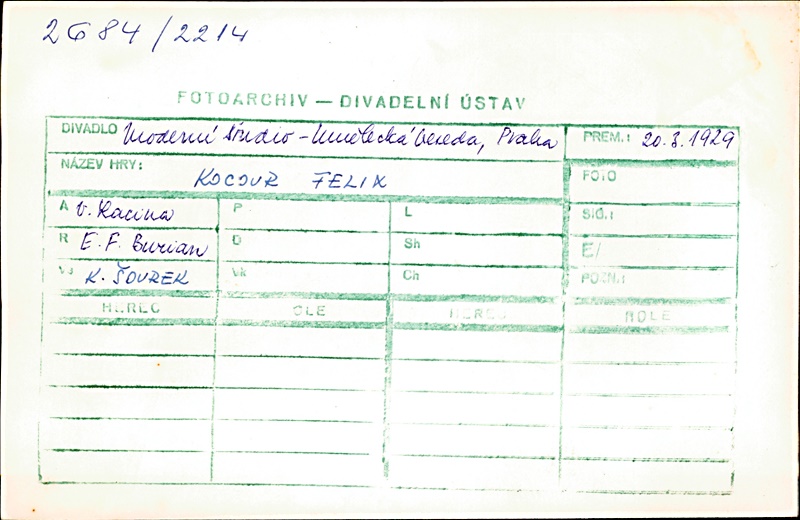 2684/2214
FOTOARCHIV — DIVADELNÍ ÚSTAV
DIVADLO Moderní studio - Umělecká beseda, Praha PREM.: 20.3.1929
NÁZEV HRY: KOCOUR FELIX FOTO
A V. Racina P L SIG.:
R E. F. Burian D Sh E/
VJ K. ŠOUREK Vk Ch POZN.:
HEREC OLE HEREC ROLE